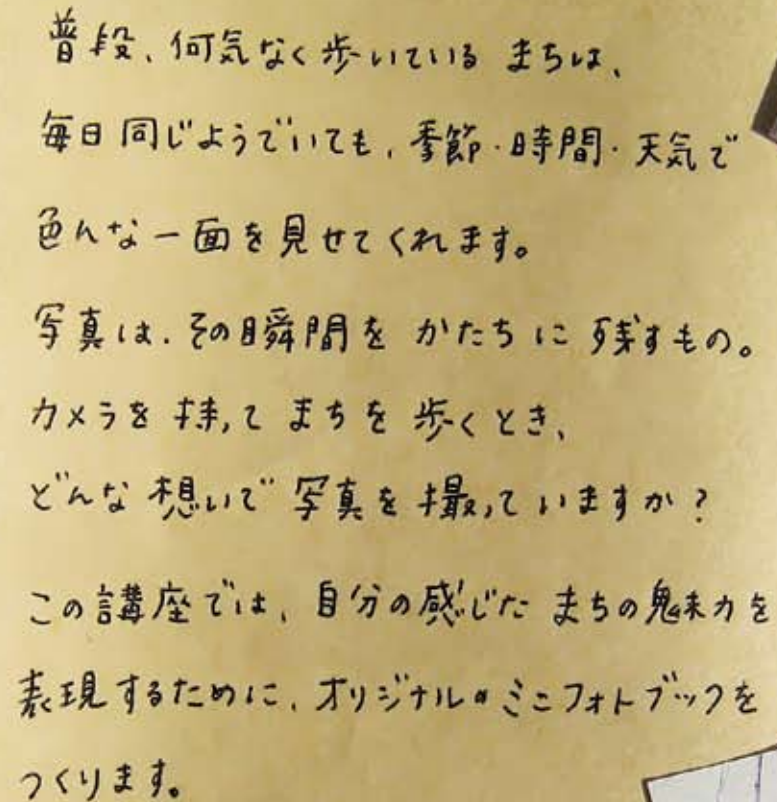 普段、何気なく歩いている まちは、
毎日同じようでいても、季節・時間・天気で
色んな一面を見せてくれます。
写真は、その瞬間を かたちに 残すもの。
カメラを 持って まちを 歩くとき、
どんな想いで 写真を撮っていますか？
この講座では、自分の感じた まちの魅力を
表現するために、オリジナルのミニフォトブックを
つくります。